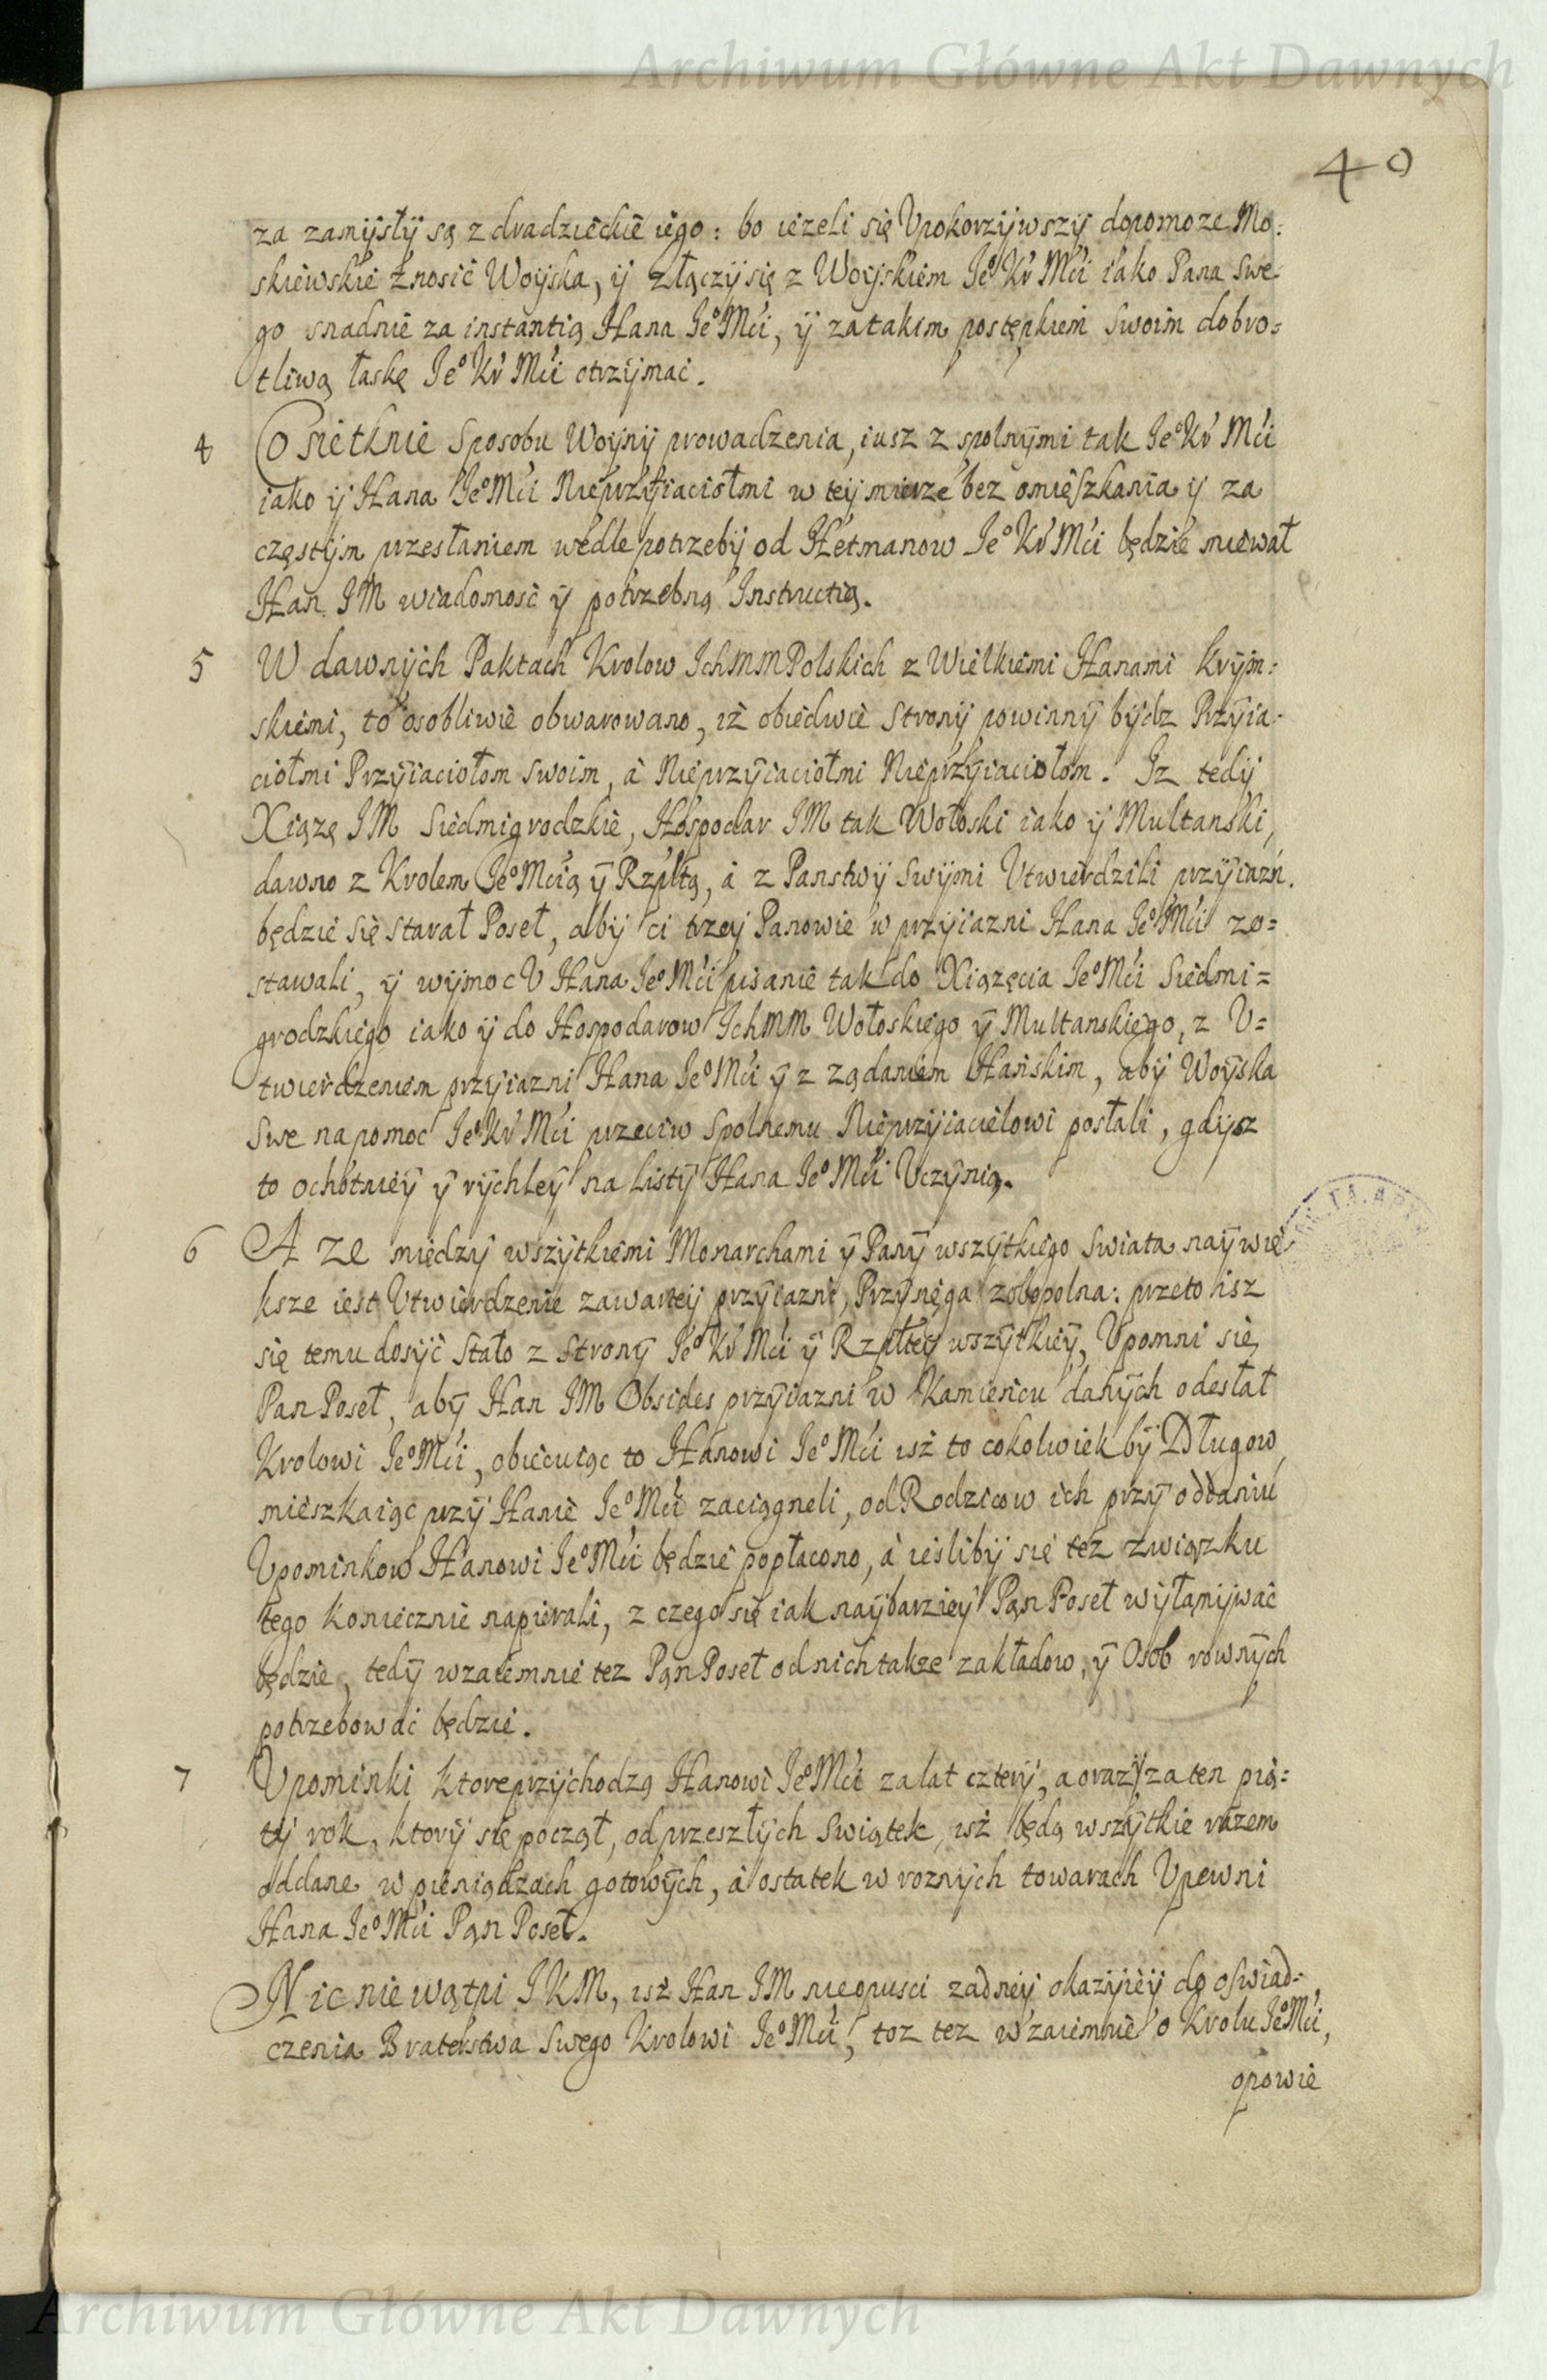 Archiwum Główne Akt Dawnych
40
za zamysły są zdradzieckie iego: bo ieżeli się Upokorzywszy dopomoze Mo:
skiewskie znosić Woyska, y złączy się z Woyskiem Jeº Kr Mći iako Pana Swe-
go snadnie za instantią Hana Jeº Mći, y za takim postępkiem Swoim dobro=
tliwą łaskę Jeº Kr Mći otrzymać.
4 Co się tknie Sposobu Woyny prowadzenia, iusz z spolnymi tak Jeº Kr Mći
iako y Hana Jeº Mći Nieprzyiaciołmi w tey mierze bez omięszkania y za
częstym przesłaniem wedle potrzeby od Hetmanow Jeº Kr Mći będzie miewał
Han JM wiadomość y potrzebną Instructią.
5 W dawnych Paktach Krolow JchMM Polskich z Wielkiemi Hanami Krym:
skiemi, to osobliwie obwarowano, iż obiedwie Strony powinny bydz Przyia-
ciołmi Przyiaciołom swoim, à Nieprzyiaciołmi Nieprzyiaciołom. Jz tedy
Xiążę JM Siedmigrodzkie, Hospodar JM tak Wołoski iako y Multanski,
dawno z Krolem Jeº Mcią y Rzpltą, à z Panstwy Swymi Utwierdzili przyiazń.
będzie się starał Poseł, aby ci trzey Panowie w przyiazni Hana Jeº Mći zo=
stawali, y wymoc U Hana Jeº Mći pisanie tak do Xiążęcia Jeº Mći Siedmi=
grodzkiego iako y do Hospodarow JchMM Wołoskiego y Multanskiego, z U=
twierdzeniem przyiazni Hana Jeº Mći y z ządaniem Hańskim, aby Woyska
Swe na pomoc Jeº Kr Mći przeciw Spolnemu Nieprzyiacielowi posłali, gdysz
to ochotniey y rychley na listy Hana Jeº Mći Uczynią.
6 A ze między wszytkiemi Monarchami y Pany wszytkiego Swiata naywię
ksze iest Utwierdzenie zawartey przyiazni, Przysięga zobopolna: przeto isz
się temu dosyć Stało z Strony Jeº Kr Mći y Rzpltey wszytkiey, Upomni się
Pan Poseł, aby Han JM Obsides przyiazni w Kamieńcu danych odesłał
Krolowi Jeº Mći, obiecuiąc to Hanowi Jeº Mći isż to cokolwiek by Długow,
mieszkaiąc przy Hanie Jeº Mći zaciągneli, od Rodzicow ich przy oddaniu
Upominkow Hanowi Jeº Mći będzie popłacono, à ieśliby się też związku
tego koniecznie napierali, z czego się iak naybarziey Pan Poseł wyłamywać
będzie, tedy wzaiemnie tez Pan Poseł od nich takze zakładow, y Osob rownych
potrzebować będzie.
7 Upominki ktore przychodzą Hanowi Jeº Mći za lat cztery, a oraz y za ten pią=
ty rok, ktory się począł, od przeszłych Swiątek, isż będą wszytkie razem
oddane w pieniądzach gotowych, à ostatek w roznych towarach Upewni
Hana Jeº Mći Pan Poseł.
Nic nie wątpi JKM, isż Han JM nieopusci zadney okazyiey do oswiad=
czenia Braterstwa Swego Krolowi Jeº Mći, toz tez wzaiemnie o Krolu Jeº Mći,
opowie
Archiwum Główne Akt Dawnych